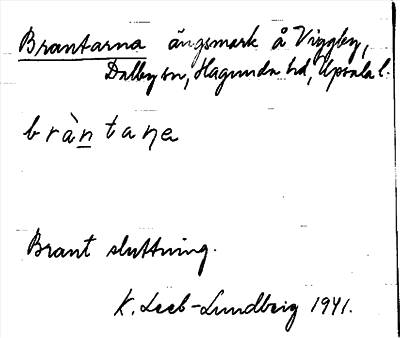 Brantarna ängsmark å Viggby,
Dalby sn, Hagunda hd, Upsala l.
bràntaṇa
Brant sluttning.
K. Leeb-Lundberg 1941.